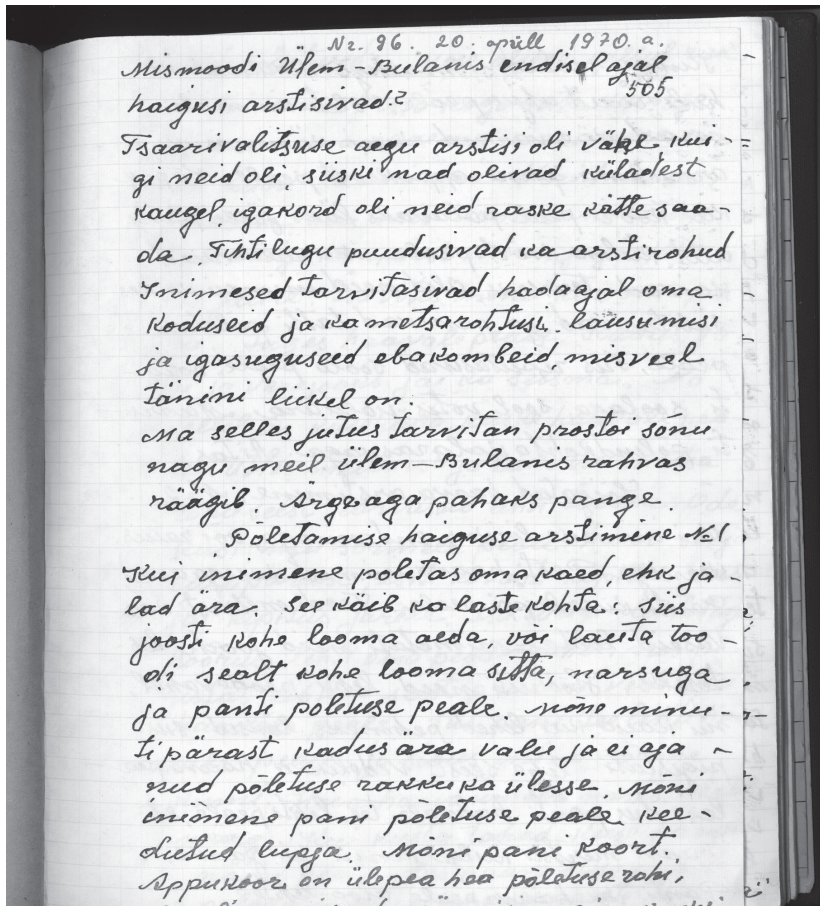 Nr. 96. 20. aprill 1970. a.
Mismoodi Ülem-Bulanis endisel ajal
505
haigusi arstisivad.?
Tsaarivalitsuse aegu arstisi oli vähe, kui-
gi neid oli, siiski nad olivad küladest
kaugel, igakord oli neid raske kätte saa-
da. Tihtilugu puudusivad ka arstirohud
Inimesed tarvitasivad hadaajal oma
koduseid ja ka metsarohtusi, lausumisi
ja igasuguseid ebakombeid, mis veel
tänini liikel on.
Ma selles jutus tarvitan prostoi sõnu
nagu meil Ülem-Bulanis rahvas
räägib. Ärge aga pahaks pange.
Põletamise haiguse arstimine №1.
Kui inimene poletas oma kaed, ehk ja-
lad ära. See käib ka laste kohta. Siis
joosti kohe looma aeda, voi lauta too-
di sealt kohe looma sitta, narsuga
ja panti poletuse peale. Mone minu-
ti pärast kadus ära valu ja ei aja-
nud põletuse rakku ka ülesse. Mõni
inimene pani põletuse peale kee-
dutud lupja. Mõni pani koort.
Appukoor on ülepea hea põletuse rohi,